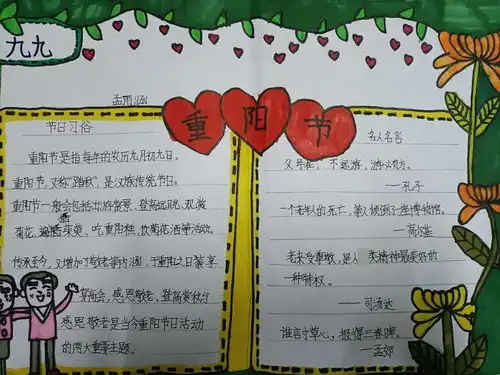 九九
孟雨涵
重阳节
节日习俗
重阳节是指每年的农历九月初九日。
重阳节，又称"踏秋"，是汉族传统节日。
重阳节一般会包括出游赏景、登高远眺、观赏
菊花、遍插茱萸、吃重阳糕、饮菊花酒等活动。
传承至今，又增加了敬老等内涵，于重阳之日享
宴高会，感恩敬老。登高赏秋与
感恩敬老是当今重阳节日活动
的两大重要主题。
名人名言
父母在，不远游，游必有方。
——孔子
一个老年人的死亡，等人倾倒了一座博物馆。
——高尔基
老来受尊敬，是人类精神最美好的
一种特权。
——司汤达
谁言寸草心，报得三春晖。
——孟郊